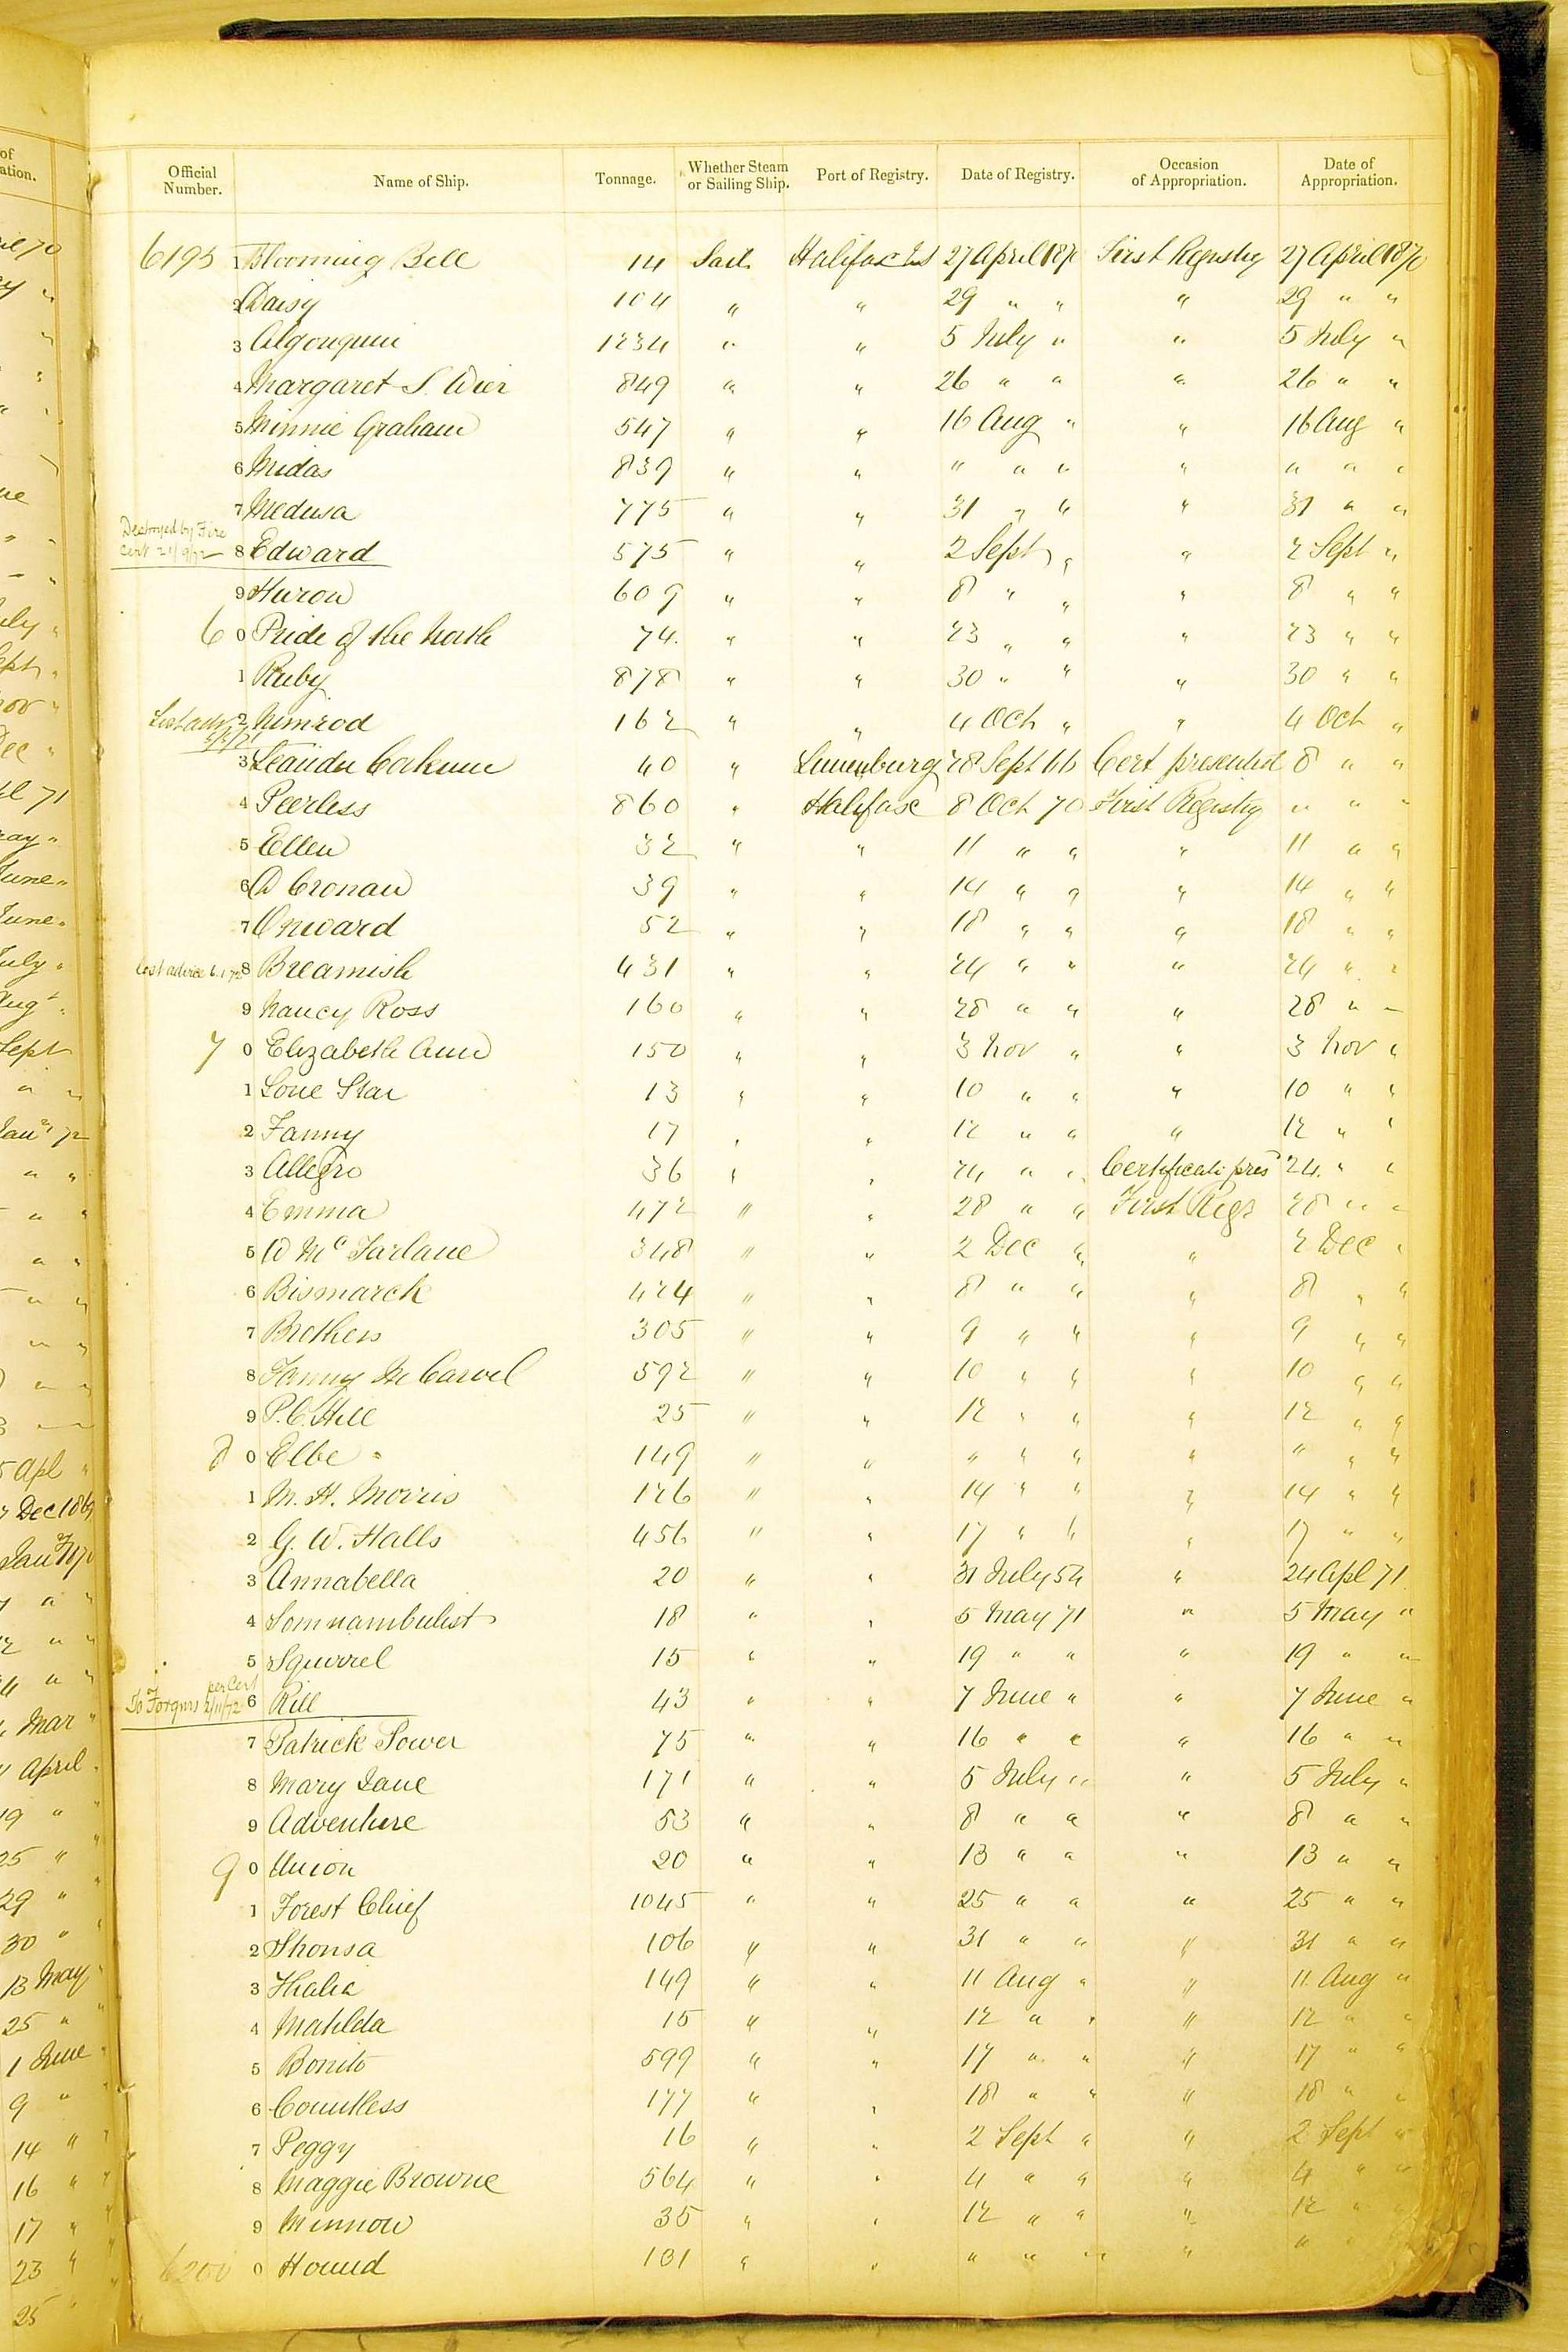 Official Number. Name of Ship. Tonnage. Whether Steam or Sailing Ship. Port of Registry. Date of Registry. Occasion of Appropriation. Date of Appropriation.
6195 1 Blooming Bell 14 Sail Halifax NS 27 April 1870 First Registry 27 April 1870
2 Daisy 104 " " 29 " " " 29 " "
3 Algonquin 1234 " " 5 July " " 5 July "
4 Margaret S. Wier 849 " " 26 " " " 26 " "
5 Minnie Graham 547 " " 16 Aug " " 16 Aug "
6 Midas 839 " " " " " " " " "
7 Medusa 775 " " 31 " " " 31 " "
Destroyed by Fire
Cert 21/9/72 8 Edward 575 " " 2 Sept " " 2 Sept "
9 Huron 609 " " 8 " " " 8 " "
6 0 Pride of the North 74 " " 23 " " " 23 " "
1 Ruby 878 " " 30 " " " 30 " "
2 Nimrod 162 " " 4 Oct " " 4 Oct "
3 Leander 40 " Lunenburg 28 Sept 66 Cert presented 8 " "
4 Peerless 860 " Halifax 8 Oct 70 First Registry " " "
5 Ellen 32 " " 11 " " " 11 " "
6 Cronan 39 " " 14 " " " 14 " "
7 Onward 52 " " 18 " " " 18 " "
Lost advice 6.1.72 8 Breamish 431 " " 24 " " " 24 " "
9 Nancy Ross 160 " " 28 " " " 28 " "
7 0 Elizabeth Ann 150 " " 3 Nov " " 3 Nov "
1 Lone Star 13 " " 10 " " " 10 " "
2 Fanny 17 " " 12 " " " 12 " "
3 Allegro 36 " " 24 " " Certificate pres 24 " "
4 Emma 472 " " 28 " " First Regr 28 " "
5 D McFarlane 348 " 2 Dec " " 2 Dec "
6 Bismarck 424 " " 8 " " " 8 " "
7 Brothers 305 " " 9 " " " 9 " "
8 Fanny M Carvel 592 " " 10 " " " 10 " "
9 P.C. Hill 25 " " 12 " " " 12 " "
8 0 Elbe 149 " " " " " " " " "
1 M. H. Morris 126 " " 14 " " " 14 " "
2 G. W. Halls 456 " " 17 " " " 17 " "
3 Annabella 20 " " 31 July 54 " 24 Apl 71
4 Somnambulist 18 " " 5 May 71 " 5 May "
5 Squirrel 15 " " 19 " " " 19 " "
per Cert
To Forgnrs 2/11/72 6 Rill 43 " " 7 June " " 7 June "
7 Patrick Power 75 " " 16 " " " 16 " "
8 Mary Jane 171 " " 5 July " " 5 July "
9 Adventure 53 " " 8 " " " 8 " "
9 0 Union 20 " " 13 " " " 13 " "
1 Forest Chief 1045 " " 25 " " " 25 " "
2 106 " " 31 " " " 31 " "
3 Thalia 149 " " 11 Aug " " 11 Aug "
4 Matilda 15 " " 12 " " " 12 " "
5 Bonito 599 " " 17 " " " 17 " "
6 Countless 177 " " 18 " " " 18 " "
7 Peggy 16 " " 2 Sept " " 2 Sept "
8 Maggie Browne 564 " " 4 " " " 4 " "
9 Minnow 35 " " 12 " " " 12 "
6200 0 Hound 131 " " " " " " " "